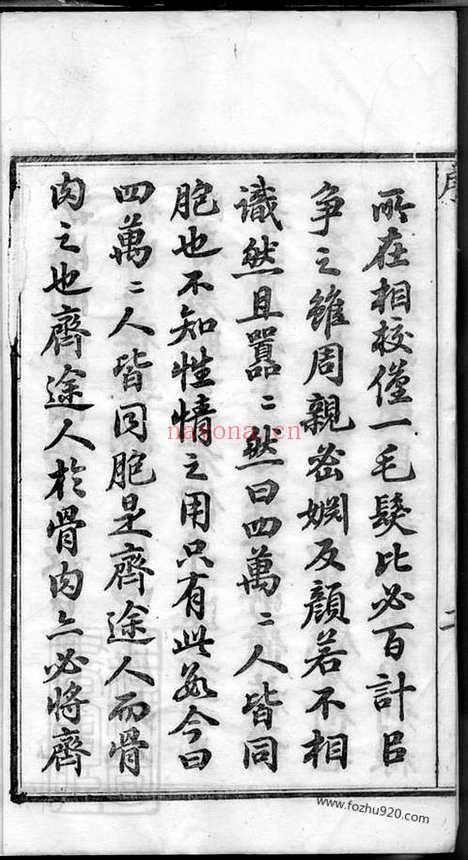 序
所在相校僅一毛髮比必百計㠯
争之雖周親密姻反顏若不相
識然且囂〻然曰四萬〻人皆同
胞也不知性情之用只有此數今曰
四萬〻人皆同胞是齊途人而骨
肉之也齊途人於骨肉亦必將齊
二
nayona.cn
www.fozhu920.com